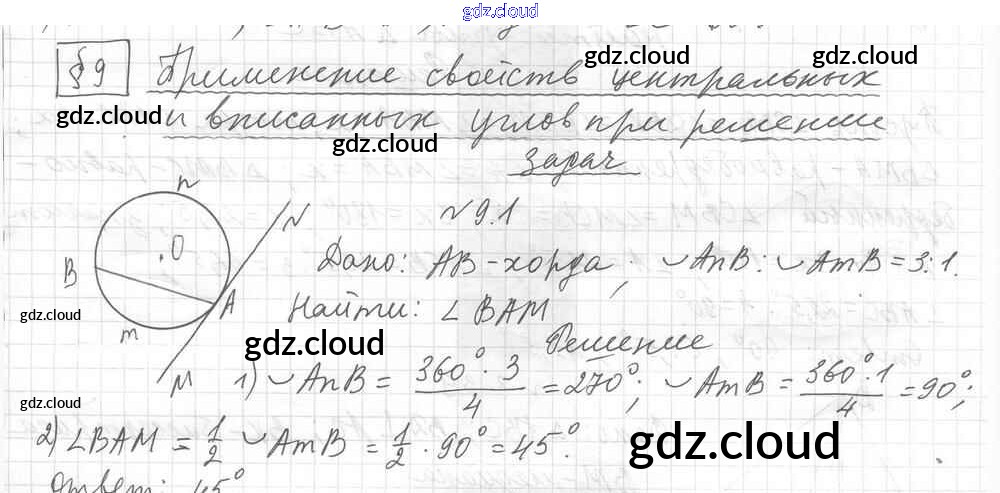 gdz.cloud
§9 Применение свойств центральных
и вписанных углов при решении
задач
gdz.cloud
gdz.cloud
gdz.cloud
gdz.cloud
№9.1
n
N
O
B
A
m
M
Дано: AB-хорда, ◡AnB: ◡AmB = 3:1.
Найти: ∠BAM
Решение
gdz.cloud
gdz.cloud
1) ◡AnB = 360°·3/4 = 270°; ◡AmB = 360°·1/4 = 90°;
gdz.cloud
2) ∠BAM = 1/2 ◡AmB = 1/2 · 90° = 45°.
gdz.cloud
Ответ: 45°